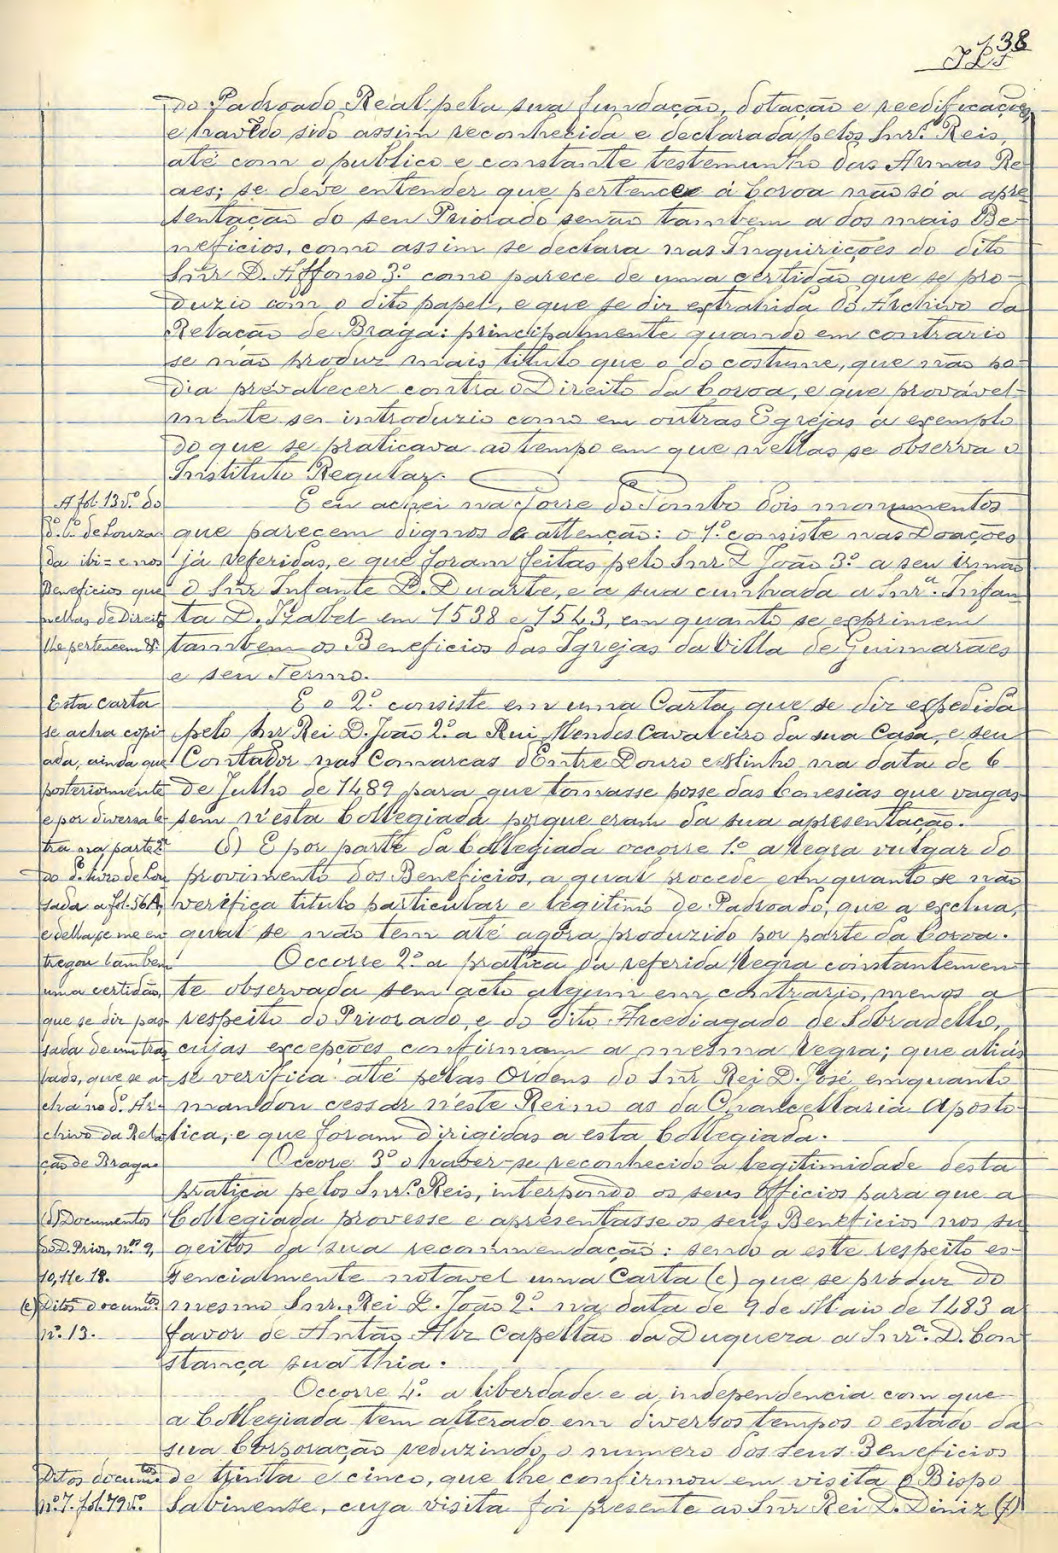 38
do Padroado Real pela sua fundação, dotação e reedificação,
e havêdo sido assim reconhecida e declarada pelos Snr.s Reis,
até com o publico e constante testemunho das Armas Re-
aes; se deve entender que pertence á Coroa não só a apre-
sentação do seu Priorado senão tambem a dos mais Be-
neficios, como assim se declara nas Inquirições do dito
Snr D. Affonso 3.º como parece de uma certidão que se pro-
duzio com o dito papel, e que se diz extrahida do Archivo da
Relação de Braga: principalmente quando em contrario
se não produz mais titulo que o do costume, que não po-
dia prevalecer contra o Direito da Coroa, e que provável-
mente se introduzio como em outras Egrejas a exemplo
do que se praticava ao tempo em que nellas se observa o
Instituto Regular.
E eu achei na Torre do Tombo dois monumentos
que parecem dignos de attenção: o 1.º consiste nas Doações
já referidas, e que foram feitas pelo Snr D João 3.º a seu irmão
O Snr Infante D. Duarte, e a sua cunhada a Snr.ª Infan-
ta D. Izabel em 1538 e 1543, em quanto se exprimem
tambem os Beneficios das Igrejas da Villa de Guimarães
e seu Termo.
E o 2.º consiste em uma Carta, que se diz expedida
pelo Snr Rei D. João 2.º a Rui Mendes Cavaleiro da sua Casa, e seu
Contador nas Comarcas d'Entre Douro e Minho na data de 6
de Julho de 1489 para que tomasse posse das Conesias que vagas-
sem n'esta Collegiada porque eram da sua apresentação.
(d) E por parte da Collegiada occorre 1.º a regra vulgar do
provimento dos Beneficios, a qual procede em quanto se não
verifica titulo particular e legitimo de Padroado, que a exclua,
qual se não tem até agora produzido por parte da Coroa.
Occorre 2.º a pratica da referida Regra constantemen-
te observada sem acto algum em contrario, menos a
respeito do Priorado, e do dito Arcediagado de Sobradello,
cujas excepções confirmam a mesma regra; que aliás
se verifica até pelas Ordens do Snr Rei D. José, emquanto
mandou cessar n'este Reino as da Chancellaria Aposto-
lica, e que foram dirigidas a esta Collegiada.
Occore 3.º o haver-se reconhecido a legitimidade desta
pratica pelos Snr.s Reis, interpondo os seus Officios para que a
Collegiada provesse e apresentasse os seus Beneficios nos su-
geitos da sua recommendação: sendo a este respeito es-
sencialmente notavel uma Carta (e) que se produz do
mesmo Snr. Rei D. João 2.º na data de 9 de Maio de 1483 a
favor de Antão Alz Capellão da Duqueza a Snr.ª D. Con-
stança sua thia.
Occorre 4.º a liberdade e a independencia com que
a Collegiada tem alterado em diversos tempos o estado da
sua Corporação reduzindo, o numero dos seus Beneficios
de trinta e cinco, que lhe confirmou em visita o Bispo
Sabinense, cuja visita foi presente ao Snr Rei D. Diniz (f)
A fol. 13 v.º do
d.º L.º de Louza-
da ibi = e nos
Beneficios que
nellas de Direito
lhe pertencem &.
Esta carta
se acha copi-
ada, ainda que
posteriormente
e por diversa le-
tra na parte 2.ª
do d.º livro de Lou-
sada a fol. 56 A,
e della se me en-
tregou tambem
uma certidão,
que se diz pas-
sada de um tras-
lado, que se a-
cha no d.º Ar-
chivo da Rela-
ção de Braga.
(d) Documentos
do D. Prior, n.os 9,
10, 11 e 18.
(e) Ditos documt.os
n.º 13.
Ditos documt.os
n.º 7. fol. 79 v.º